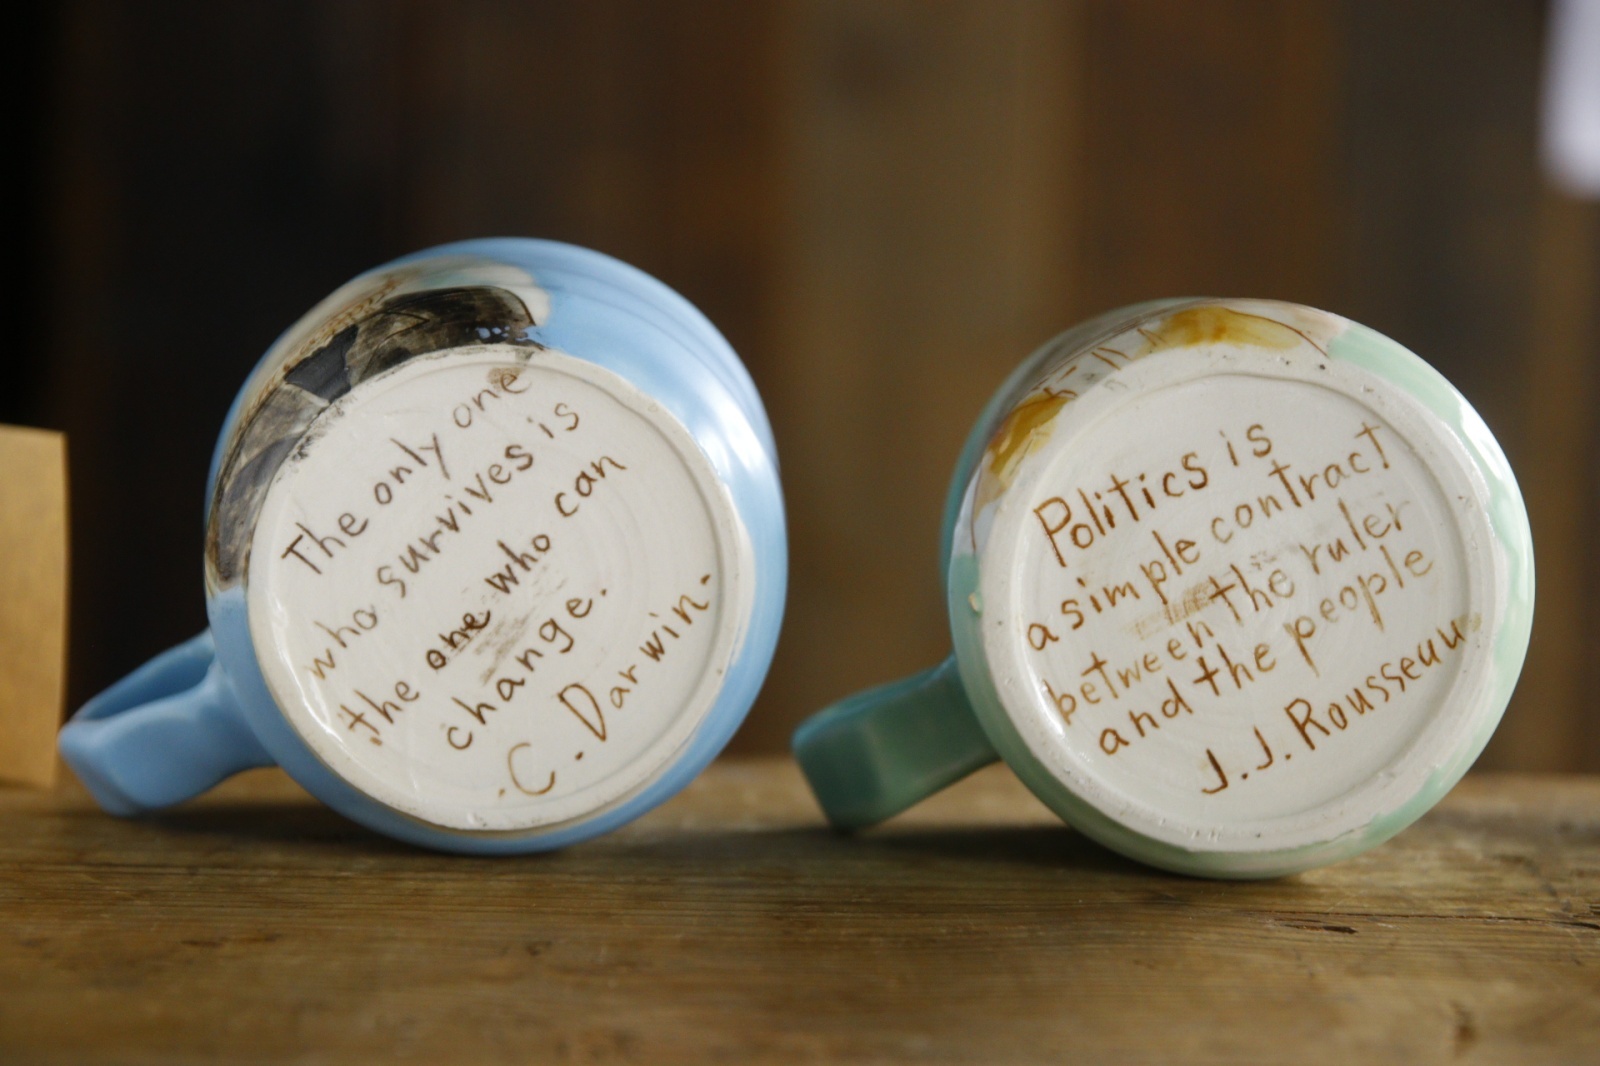 The only one
who survives is
the one who can
change.
C. Darwin.
Politics is
a simple contract
between the ruler
and the people
J.J. Rousseau